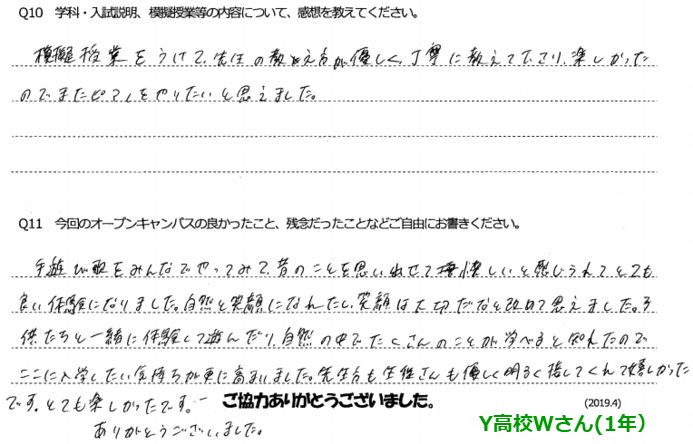 Q10 学科・入試説明、模擬授業等の内容について、感想を教えてください。
模擬授業をうけて、先生の教え方が優しく、丁寧に教えて下さり、楽しかった
のでまたピアノをやりたいと思えました。
Q11 今回のオープンキャンパスの良かったこと、残念だったことなどご自由にお書きください。
手遊び歌をみんなでやってみて、昔のことを思い出せて懐しいと感じられてとても
良い体験になりました。自然と笑顔になれたし、笑顔は大切だなと改めて思えました。子
供たちと一緒に体験して遊んだり、自然の中でたくさんのことが学べると知れたので
ここに入学したい気持ちが更に高まりました。先生方も生徒さんも優しく明るく接してくれて嬉しかった
です。とても楽しかったです。
ご協力ありがとうございました。
(2019.4)
ありがとうございました。
Y高校Wさん(1年)